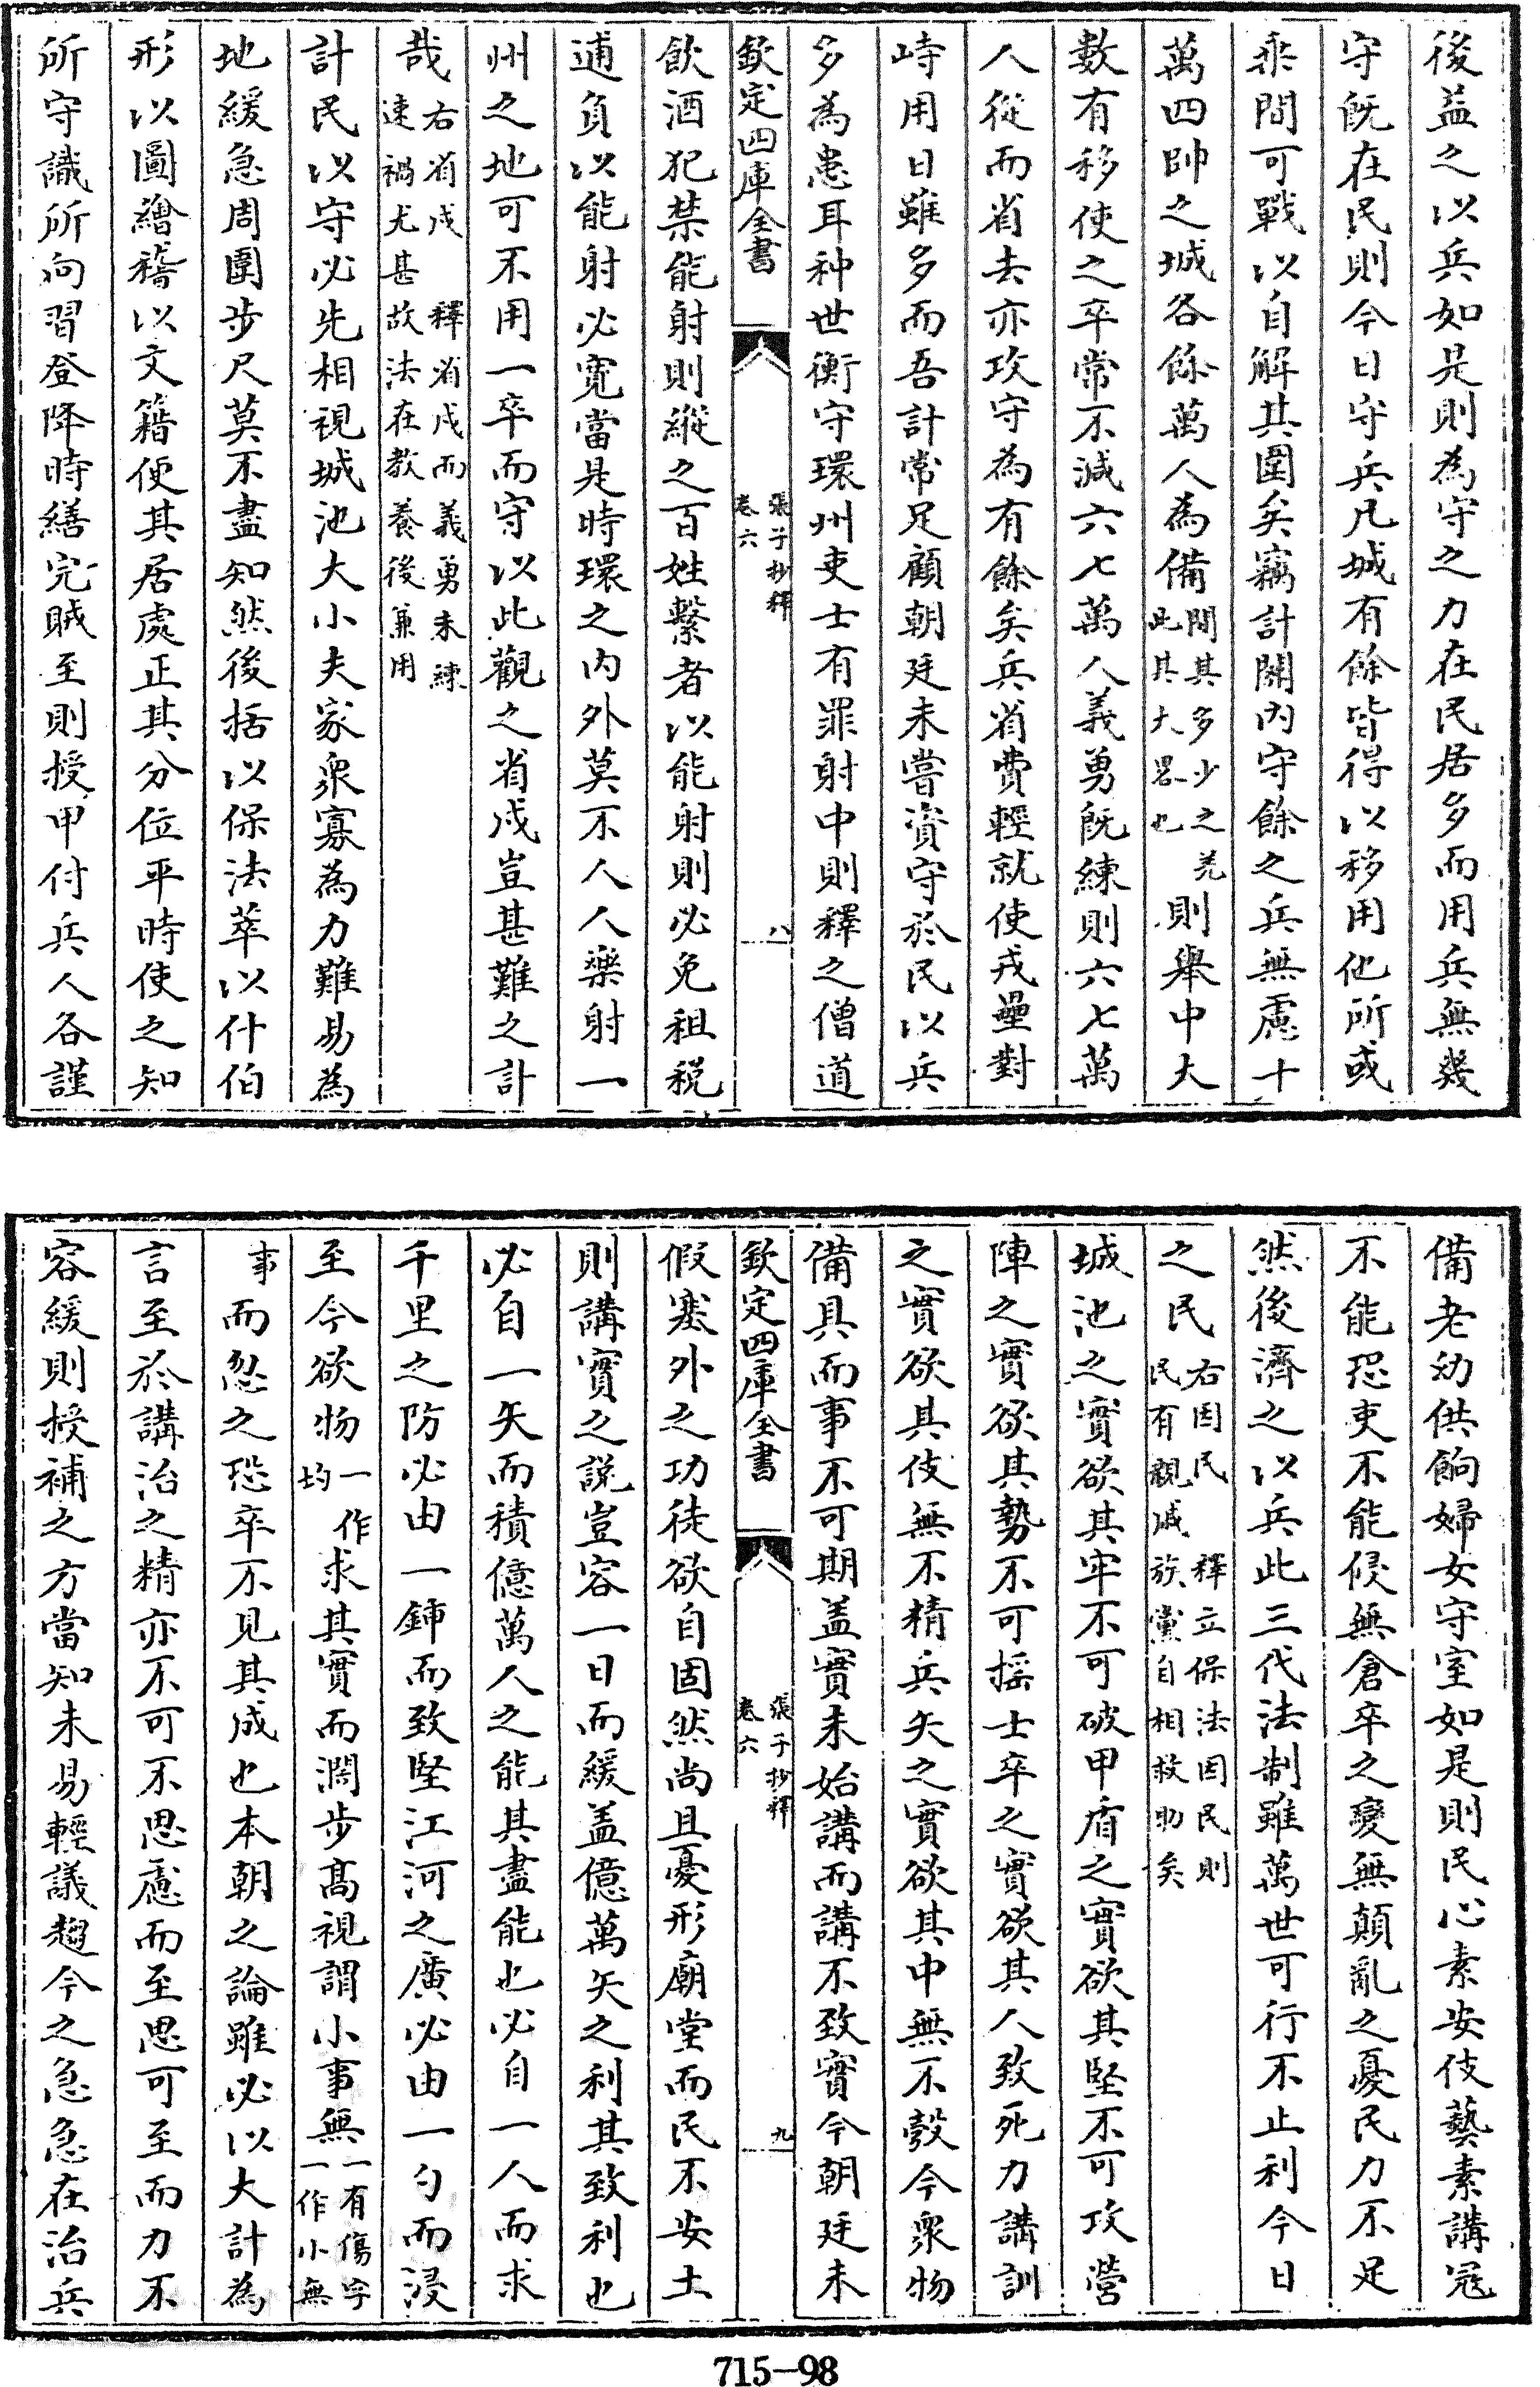 後益之以兵如是則為守之力在民居多而用兵無幾
守既在民則今日守兵凡城有餘皆得以移用他所或
乘間可戰以自解其圍矣竊計關内守餘之兵無慮十
萬四帥之城各餘萬人為備間其多少之羌此其大畧也則舉中大
數有移使之卒常不減六七萬人義勇既練則六七萬
人從而省去亦攻守為有餘矣兵省費輕就使戎壘對
峙用日雖多而吾計常足顧朝廷未嘗資守於民以兵
多為患耳种世衡守環州吏士有罪射中則釋之僧道
欽定四庫全書 張子抄釋卷六 八
飲酒犯禁能射則縱之百姓繫者以能射則必免租税
逋負以能射必寛當是時環之内外莫不人人樂射一
州之地可不用一卒而守以此觀之省戍豈甚難之計
哉右省戍 釋省戍而義勇未練速禍尤甚故法在教養後兼用
計民以守必先相視城池大小夫家衆寡為力難易為
地緩急周圍步尺莫不盡知然後括以保法萃以什伯
形以圖繪稽以文籍使其居處正其分位平時使之知
所守識所向習登降時繕完賊至則授甲付兵人各謹
備老幼供餉婦女守室如是則民心素安伎藝素講冦
不能恐吏不能侵無倉卒之變無顛亂之憂民力不足
然後濟之以兵此三代法制雖萬世可行不止利今日
之民右因民 釋立保法因民則民有親戚族黨自相救助矣
城池之實欲其牢不可破甲盾之實欲其堅不可攻營
陣之實欲其勢不可揺士卒之實欲其人致死力講訓
之實欲其伎無不精兵矢之實欲其中無不彀今衆物
備具而事不可期盖實未始講而講不致實今朝廷未
欽定四庫全書 張子抄釋卷六 九
假塞外之功徒欲自固然尚且憂形廟堂而民不安土
則講實之説豈容一日而緩盖億萬矢之利其致利也
必自一矢而積億萬人之能其盡能也必自一人而求
千里之防必由一鍤而致堅江河之廣必由一勺而浸
至今欲物一作均求其實而濶步髙視謂小事無一有傷字一作小無
事而忽之恐卒不見其成也本朝之論雖必以大計為
言至於講治之精亦不可不思慮而至思可至而力不
容緩則授補之方當知未易輕議趨今之急急在治兵
715-98